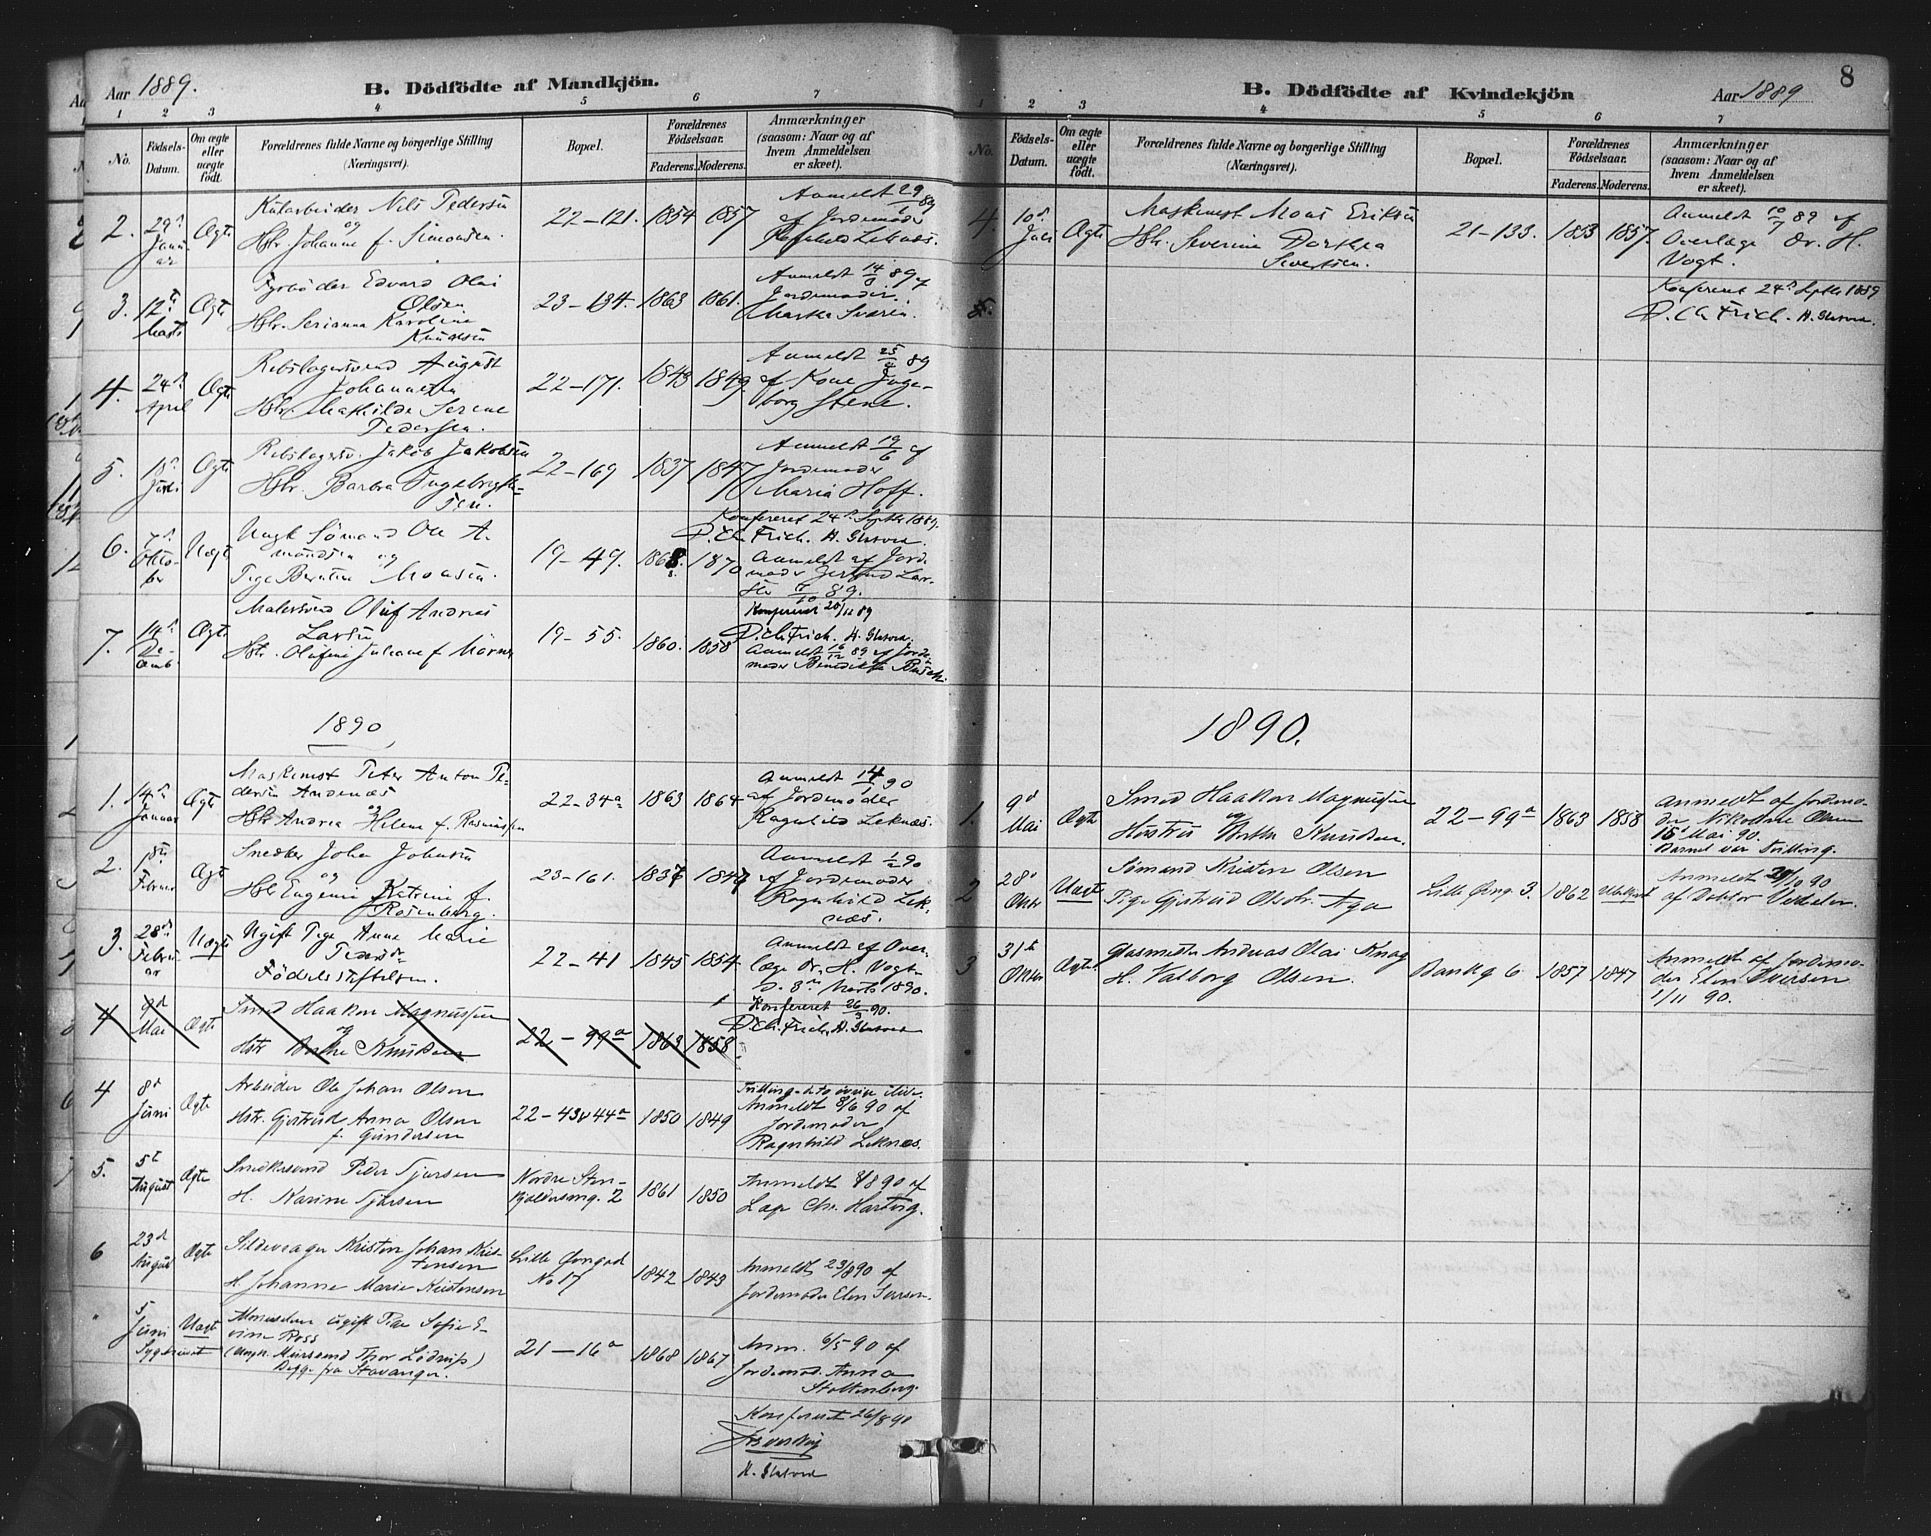 Aar 1889.
B. Dödfödte af Mandkjön.
1 2 3 4 5 6 7
No.
Födsels-Datum.
Om ægte eller uægte födt.
Forældrenes fulde Navne og borgerlige Stilling (Næringsvei).
Bopæl.
Forældrenes Födselsaar.
Faderens. Moderens.
Anmærkninger (saasom: Naar og af hvem Anmeldelsen er skeet).
2. 29d Januar Ægte
Kularbeider Nils Pedersen
og
Hstr. Johanne f. Simonsen.
22–121. 1854 1857
Anmeldt 29/1 89
af Jordemoder
Ragnhild Leknæs.
3. 12te Marts Ægte
Fyrbøder Edvard Olai
Olsen
Hstr. Serianna Karoline
Knudsen
23–134. 1863 1861.
Anmeldt 14/3 89 af
Jordemoder
Marta
4. 24d April Ægte
Rebslagersvend August
Johannesen
Hstr. Mathilde Serene
Pedersen.
22–171. 1843 1849
Anmeldt 25/4 89
af Kone Inge-
borg Stene.
5. 18d Ægte
Rebslagersv. Jakob Jakobsen
Hstr. Barbra Ingebrigt-
sen.
22–169 1837 1847
Anmeldt 19/6 af
Jordemoder
Maria Hoff.
Konfereret 24d Septbr 1889.
D. Ch. Frich. H.
6. 7d Oktober Uægte
Ungk. Sömand Ole A-
mundsen og
Pige Berntine Monsen.
19–49. 1868. 1870
Anmeldt af Jord-
moder Gertrud Lar-
sen 7/10 89.
Konfereret 20/11 89
D. Ch. Frich. H.
7. 14d Decemb. Ægte
Malersvend Oluf Andreas
Larsen
Hstr. Olufine Juliane f Mörner
19–55. 1860. 1858
Anmeldt 16/12 89 af Jorde-
moder Benedikte Busch.
1890
1. 14d Januar Ægte
Maskinist Peter Anton Pe-
dersen Andenæs
og
Hstr Andrea Helene f. Rasmussen
22–34a 1863 1864
Anmeldt 14/1 90
af Jordemoder
Ragnhild Leknæs.
2. Februar Ægt
Snedker Johan Johnsen
og
Hstr Eugenie Katrine f.
Rosenberg.
23–161. 1837 1847
Anmeldt 1/2 90
af Jordemoder
Ragnhild Lek-
næs.
3. 28de Februar Uægte
Ugift Pige Anne Marie
Pedersen
Födselsstiftelsen.
22–41 1845 1854
Anmeldt af Over-
læge Dr. H. Vogt
D. 3die Marts 1890.
Konfereret 26/3 90.
D. Ch. Frich. H.
4 9d Mai Ægte
Smed Haakon Magnussen
og
Hstr Knudsen
22–99a 1863 1858
4 8d Juni Ægte
Arbeider Ole Johan Olsen
Hstr. Gjertrud Anna Olsen
f. Gundersen
22–43 & 44a 1850 1849
Tvilling de to øvrige ilive.
Anmeldt 8/6 90 af
Jordemoder
Ragnhild Leknæs.
5. 5te August Ægte
Snedkersvend Peder Tjersen
H. Karine Tjersen
Nordre Sten-
kjeldersmg. 2 1861 1850
Anmeldt 8/8 90 af
Læge Chr. Hartvig.
6 23d August Ægte
Sildevrager Kristen Johan Kris-
tensen
H. Johanne Marie Kristensen
Lille Øvregad
No 17 1842 1843
Anmeldt 23/8 90 af
Jordemoder Elen Iversen.
" 5 Juni Uægt
Sygehuset
ugift Pige Sofie E-
vine Ross
(Ungk. Mursvend Thor Lödrup)
Begge fra Stavanger.
21–16a 1868 1867
Anm. 6/5 90 af
Jordemod. Anna
Stoltenberg.
Konfereret 26/8 90
H.
8
B. Dödfödte af Kvindekjön
Aar 1889
1 2 3 4 5 6 7
No.
Födsels-Datum.
Om ægte eller uægte födt.
Forældrenes fulde Navne og borgerlige Stilling (Næringsvei).
Bopæl.
Forældrenes Födselsaar.
Faderens. Moderens.
Anmærkninger (saasom: Naar og af hvem Anmeldelsen er skeet).
4. 10d Juli Ægte
Maskinist Mons Eriksen
Hstr. Severine Dorthea
Sivertsen.
21–133. 1853 1857.
Anmeldt 10/7 89 af
Overlæge Dr. H.
Vogt.
Konfereret 24d Septbr 1889
D. Ch. Frich. H.
1890.
1. 9d Mai Ægte
Smed Haakon Magnussen
og
Hustru Knudsen.
22–99a 1863 1858
Anmeldt af Jordemo-
der Nikoline Olsen
15d Mai 90.
Barnet var Tvilling.
2 28d Oktbr Uægt
Sömand Kristen Olsen
Pige Gjertrud Olsdtr. Aga
Lille Øvreg. 3. 1862 Ubekjent
Anmeldt 29/10 90
af Doktor
3 31te Oktbr Ægte.
Glasmester Andreas Olai Knag
H. Valborg Olsen.
Bankg 6 1857 1847
Anmeldt af Jordemo-
der Elen Iversen
1/11 90.